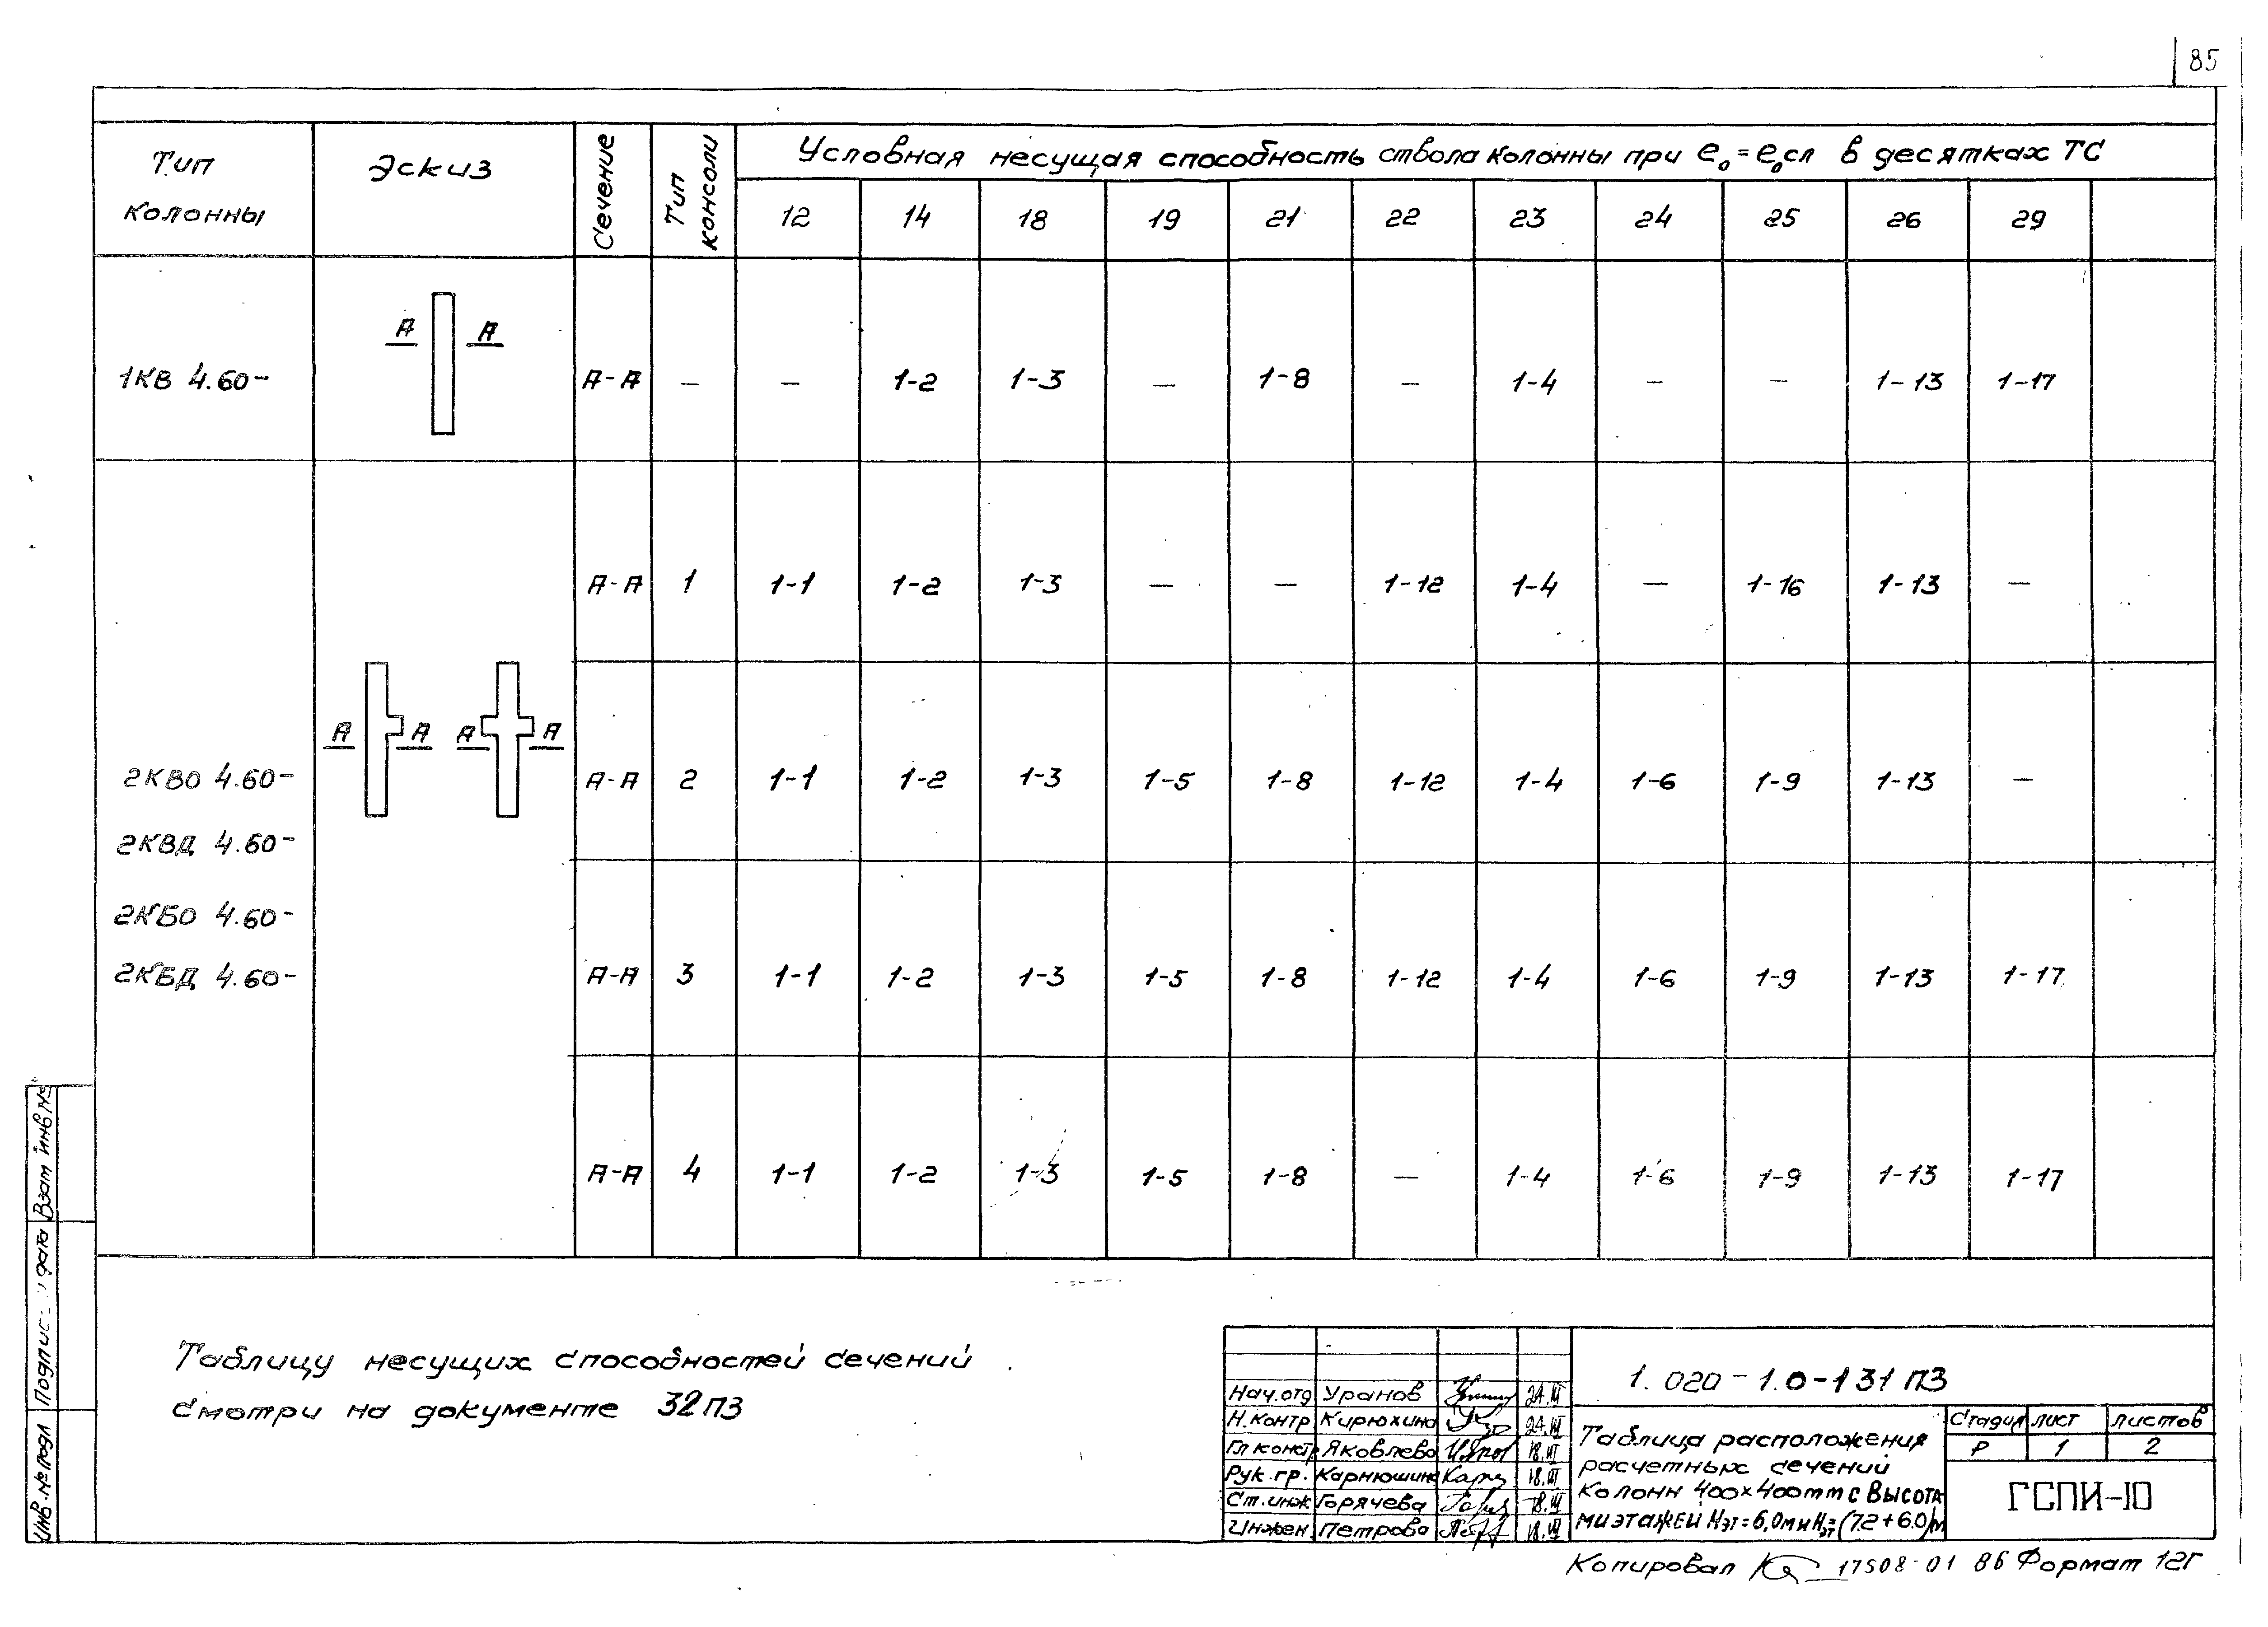 85
Тип колонны Эскиз Сечение Тип консоли Условная несущая способность ствола колонны при e₀ = e₀сл в десятках ТС
12 14 18 19 21 22 23 24 25 26 29
А А
1КВ 4.60- А-А — — 1-2 1-3 — 1-8 — 1-4 — — 1-13 1-17
А-А 1 1-1 1-2 1-3 — — 1-12 1-4 — 1-16 1-13 —
А А А А
2КВО 4.60- А-А 2 1-1 1-2 1-3 1-5 1-8 1-12 1-4 1-6 1-9 1-13 —
2КВД 4.60-
2КБО 4.60-
2КБД 4.60- А-А 3 1-1 1-2 1-3 1-5 1-8 1-12 1-4 1-6 1-9 1-13 1-17
А-А 4 1-1 1-2 1-3 1-5 1-8 — 1-4 1-6 1-9 1-13 1-17
Таблицу несущих способностей сечений
смотри на документе 32ПЗ
Взам инв №
Подпись и дата
Инв. № подл
Нач.отд Уранов 24.III
Н.контр Кирюхина 24.III
Гл констр Яковлева 18.III
Рук.гр. Карнюшина 18.III
Ст.инж Горячева 18.III
Инжен Петрова 18.III
1.020-1.0-131ПЗ
Таблица расположения
расчетных сечений
колонн 400×400мм с высота-
ми этажей Hэт=6,0м и Hэт=(7.2+6.0)м
Стадия лист листов
Р 1 2
ГСПИ-10
Копировал 17508-01 86 Формат 12Г